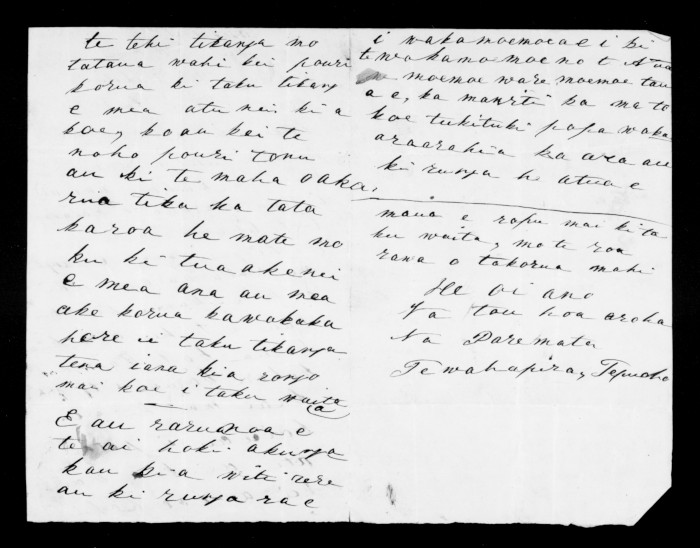 te tehi tikanga mo
tataua wahi kei pouri
korua ki taku tikanga
e mea atu nei ki a
koe, ko au kei te
noho pouri tonu
au ki te maha oaka,
rua tika ka tata
karoa he mate mo
ku ki tua akenei
e mea ana au mea
ake korua kawakaka
here i taku tikanga
tena iana kia rongo
mai koe i taku waita
E au raru noa e
te ai hoki akunga
kau kia witi rere
au ki runga ra e
i wakamoemoeae i ki
tewakamomoe no t Atua
moemoe ware, moemoe tau
a e, ka ma to
koe tukituki papa waka
araarahia ka ara au
ki runga he atua e
maua e ropu mai ki ta
ku waita, mo te roa
rawa o takorua mahi
He oi ano
Na tou hoa aroha
Na Paremata
Tewahapiro, Tepuoho